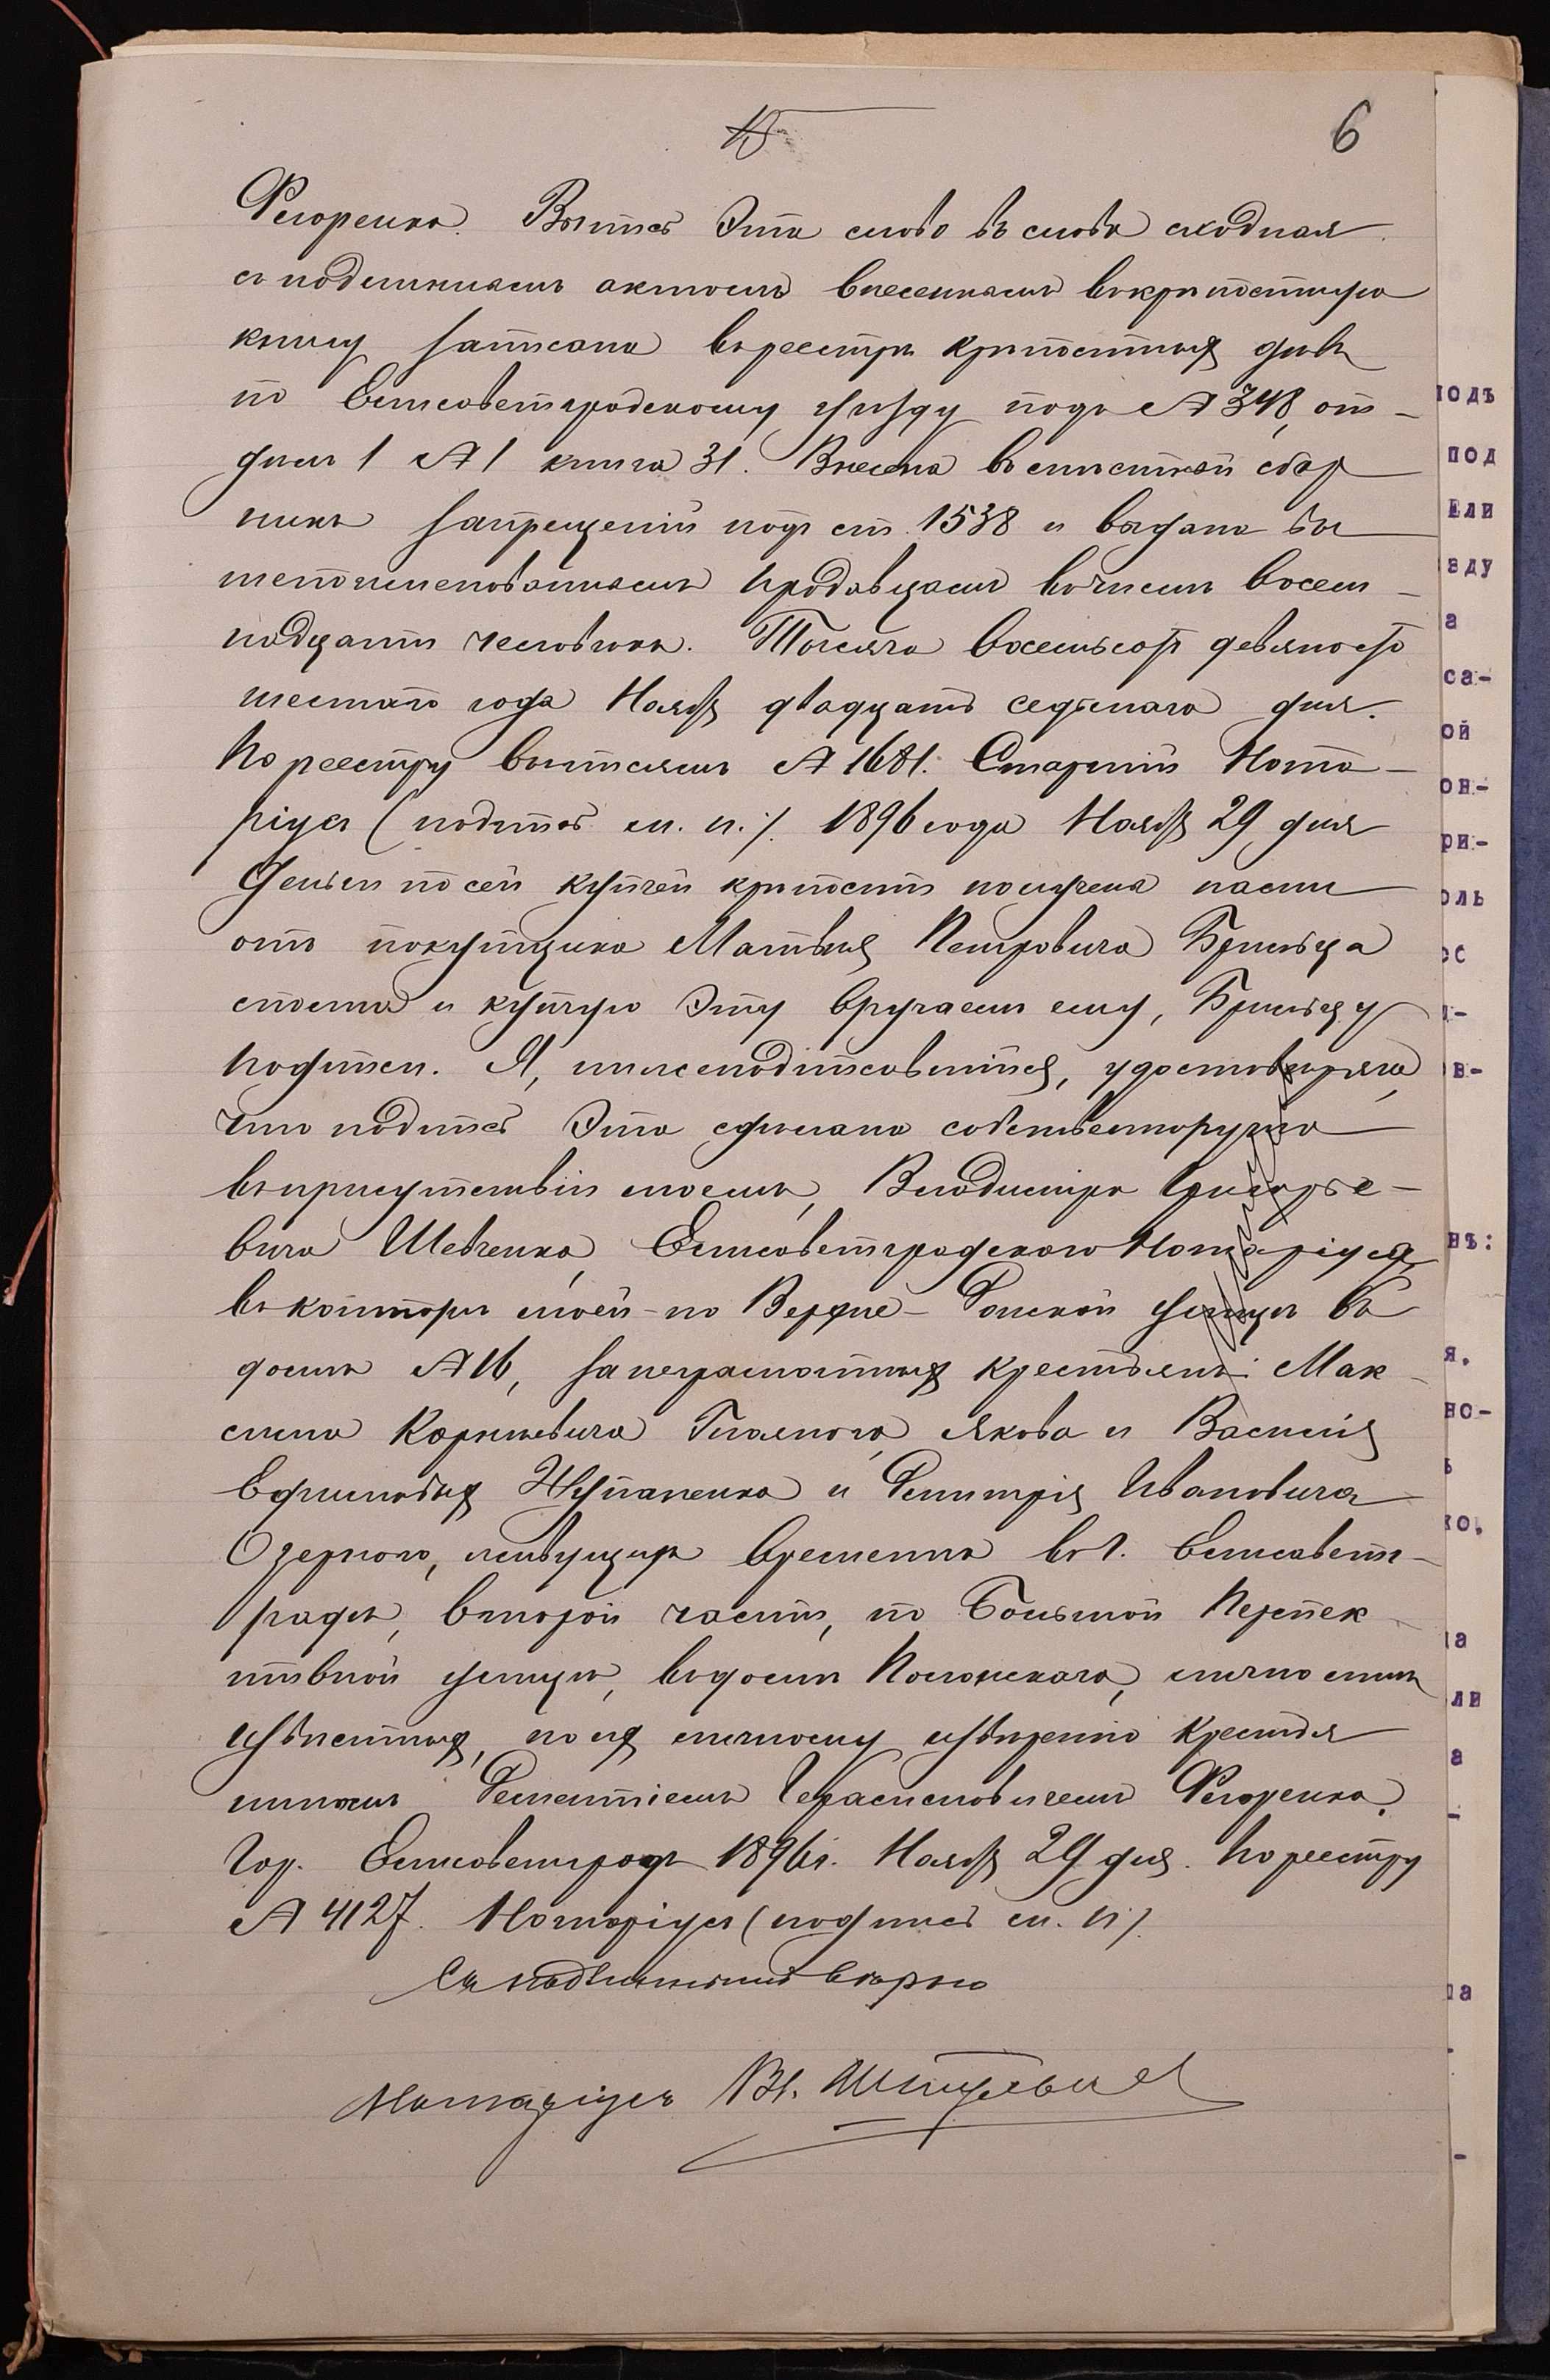 6
Фегоренко. Выпись эта слово въ слово сходная
съ подлиннымъ актомъ внесеннымъ въ крѣпостную
книгу записана въ реестрѣ крѣпостныхъ дѣлъ
по Елисаветградскому уѣзду подъ № 348, от-
дѣлъ 1 № 1 книга 31. Внесена въ мѣстный сбор
никъ запрещеній подъ ст. 1538 и выдана вы
шепоименованнымъ продавцамъ въ числѣ восем-
надцати человѣкъ. Тысяча восемьсотъ девяносто
шестаго года Ноября двадцать седьмаго дня.
По реестру выписямъ № 1681. Старшій Нота-
ріусъ (подпись м. п.). 1896 года Ноября 29 дня
Деньги по сей купчей крѣпости получены нами
отъ покупщика Матвѣя Петровича Брильца
сполна и купчую эту вручаемъ ему, Брильцу
Подписи. Я, нижеподписавшійся, удостовѣряю,
что подпись эта сдѣлана собственноручно
въ присутствіи моемъ, Владиміра Григорье-
вича Шевченко, Елисаветградскаго Нотаріуса,
въ конторѣ моей по Верхне-Донской улицѣ въ
домѣ № 16, за неграмотныхъ крестьянъ: Мак
сима Корнѣевича Гнаянаго, Якова и Василія
Ефимовыхъ Жупаненко и Димитрія Ивановича
Озернаго, живущихъ временно въ г. Елисавет-
градѣ, второй части, по Большой Перспек-
тивной улицѣ, въ домѣ Полонскаго, лично мнѣ
извѣстныхъ, по ихъ личному увѣренію крестья
ниномъ Дементіемъ Герасимовичемъ Фегоренко.
Гор. Елисаветградъ 1896 г. Ноября 29 дня. По реестру
№ 4127. Нотаріусъ (подпись м. п.)
Съ подлиннымъ вѣрно
Нотаріусъ Вл.
подъ
под
Ели
зду
а
са-
ой
он-
ри-
оль
ос
в-
нъ:
я.
но-
ко.
ла
ли
а
па